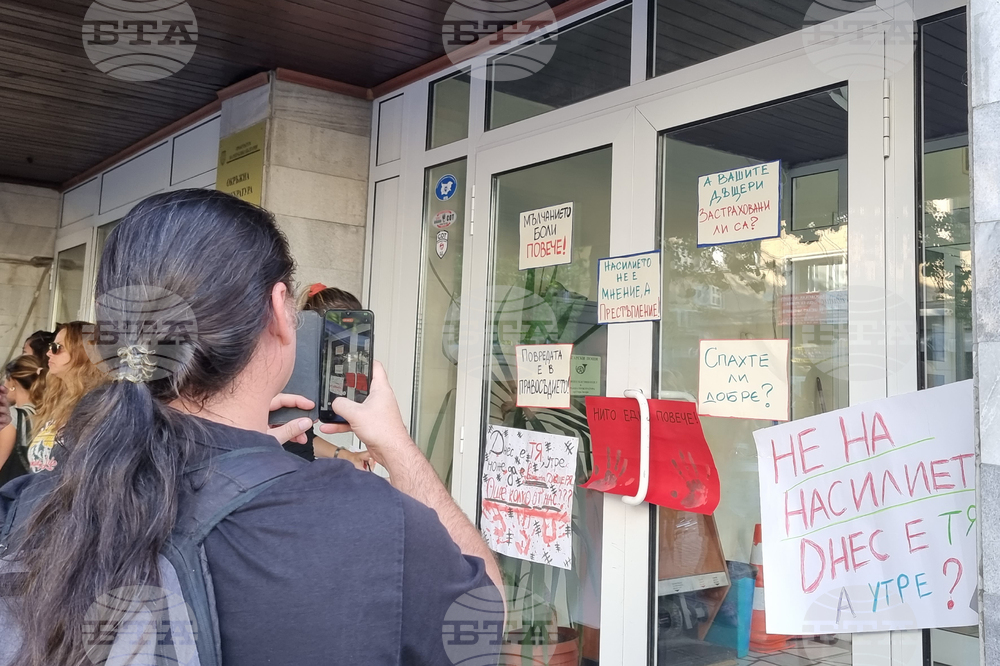 БТА
БТА
БТА
ОКРЪЖНА
МЪЛЧАНИЕТО
БОЛИ
ПОВЕЧЕ!
А ВАШИТЕ
ДЪЩЕРИ
ЗАСТРАХОВАНИ
ЛИ СА?
НАСИЛИЕТО
НЕ Е
МНЕНИЕ, А
ПРЕСТЪПЛЕНИЕ!
ПОВРЕДАТА
Е В
ПРАВОСЪДИЕТО!
СПАХТЕ
ЛИ
ДОБРЕ?
НИТО ЕДНА ПОВЕЧЕ!
ДНЕС Е ТЯ
УТРЕ
НЕ НА
НАСИЛИЕТО
ДНЕС Е ТЯ
А УТРЕ?
БТА
БТА
БТА